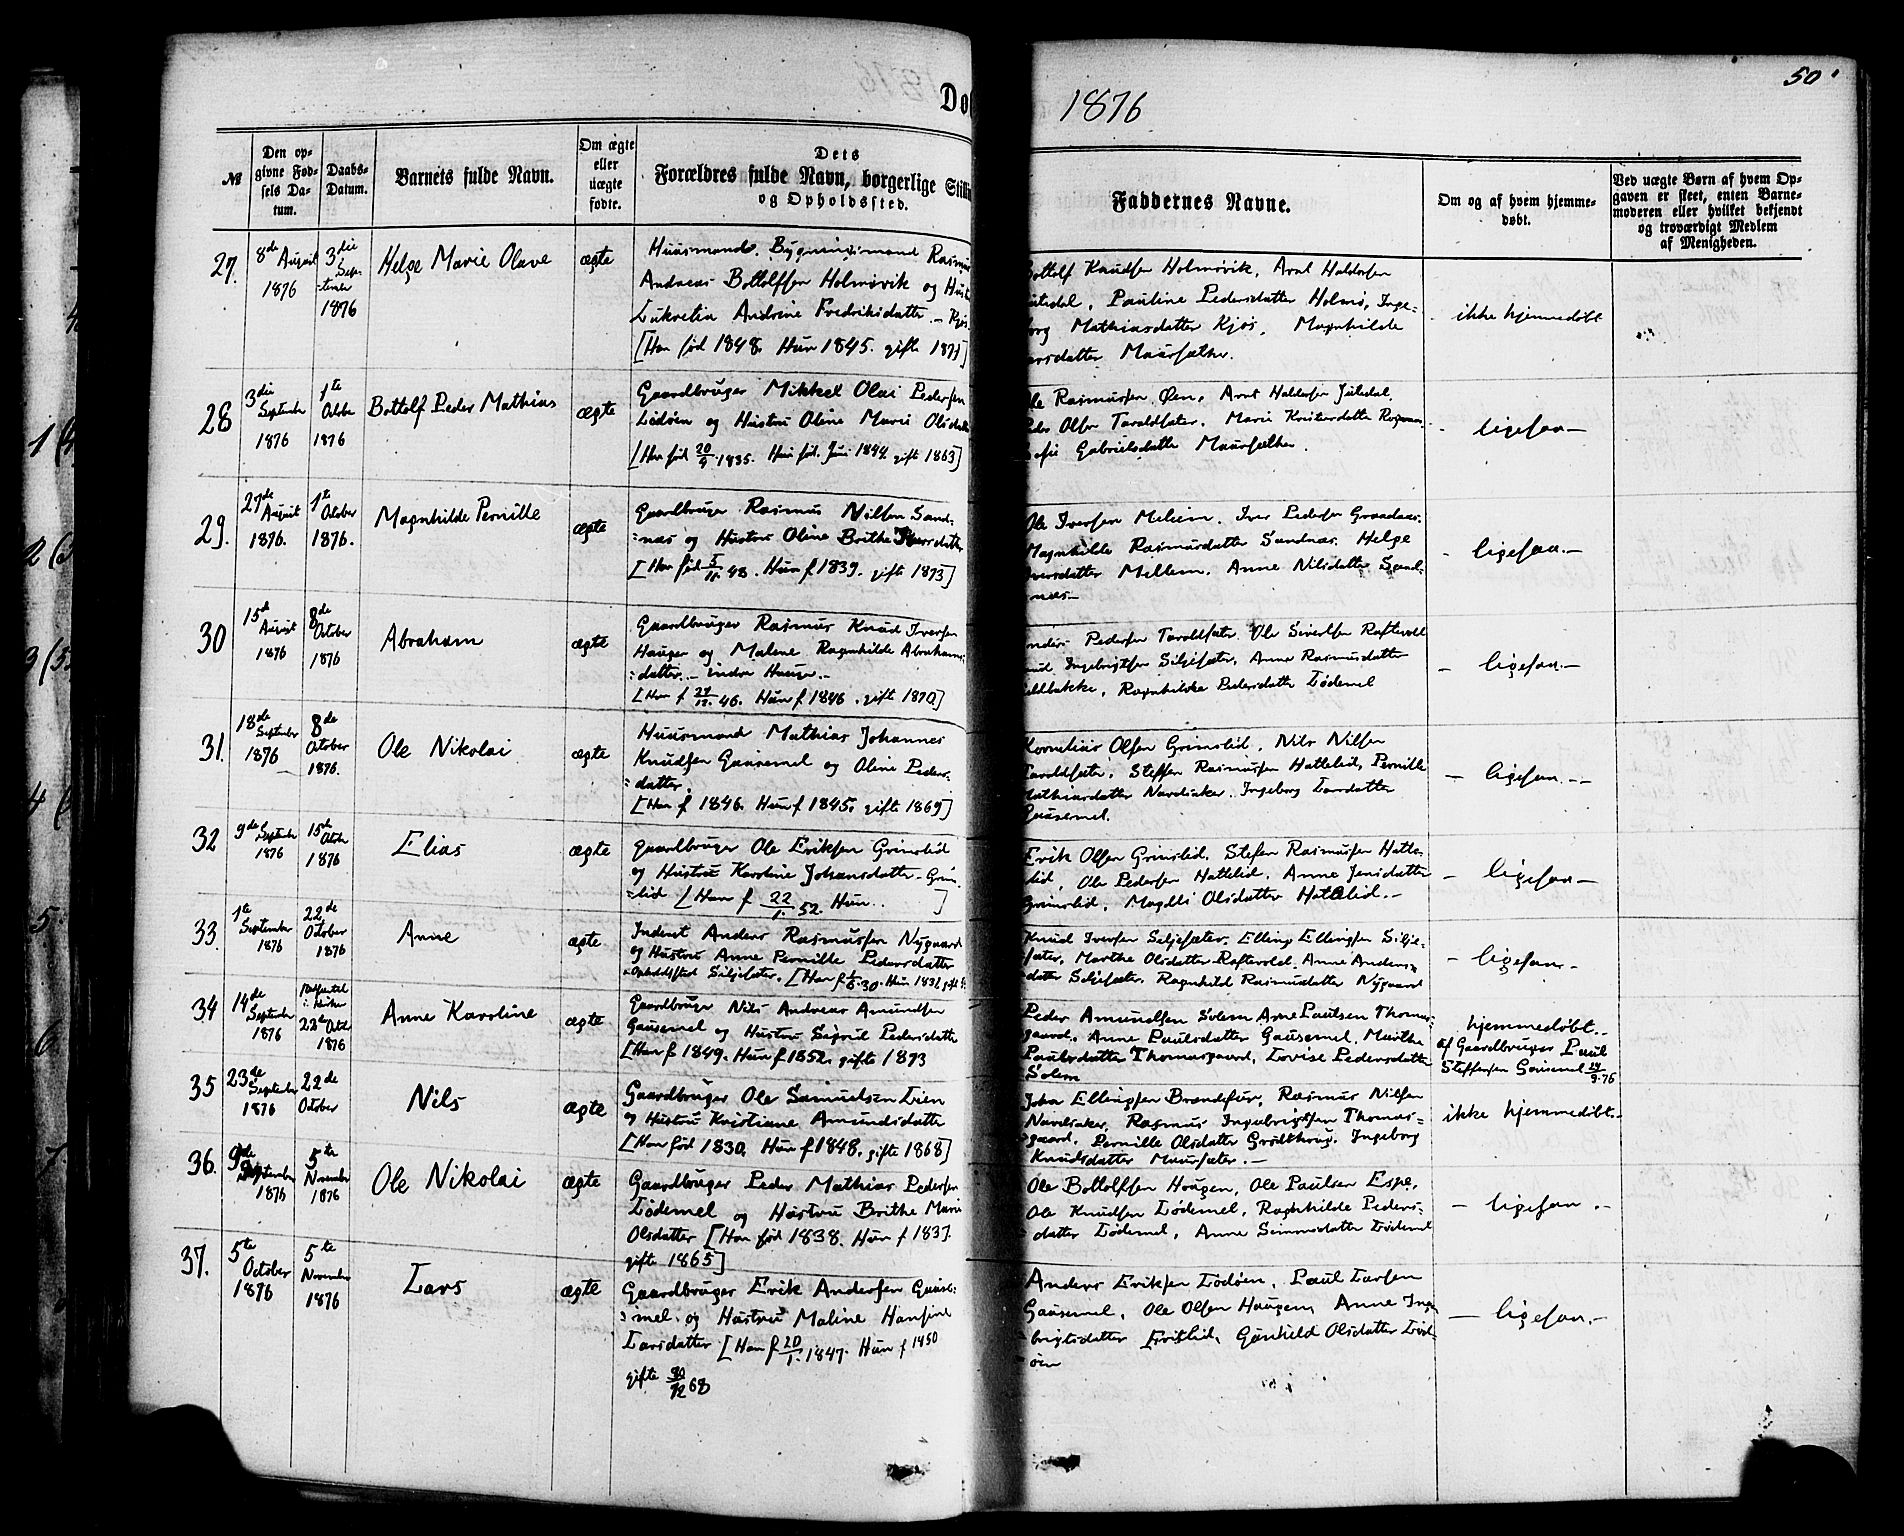 50
1876
Dø
№
Den op-
givne Fød-
sels Da-
tum.
Daabs-
Datum.
Barnets fulde Navn.
Om ægte
eller
uægte
fødte.
Dets
Forældres fulde Navn, borgerlige Stilli
og Opholdssted.
Faddernes Navne.
Om og af hvem hjemme-
døbt.
Ved uægte Børn af hvem Op-
gaven er skeet, enten Barne-
moderen eller hvilket bekjendt
og troværdigt Medlem
af Menigheden.
27.
8de August
1876
3die
Sep-
tember
1876
Helge Marie Olave
ægte
Huusmand. Bygningsmand Rasmus
Andreas Bottolfsen Holmøvik og Hust
Lukretia Andrine Fredriksdatter.
[Han født 1848. Hun 1845. gifte 1871]
Bottolf Knudsen Holmøvik, Arnt Haldorsen
Pauline Pedersdatter Holmø, Inge-
borg Mathiasdatter Kjøs, Magnhilde
Larsdatter Maursæther.
ikke hjemmedøbt
28
3die
September
1876
1te
Octobr
1876
Bottolf Peder Mathias
ægte
Gaardbruger Mikkel Olai Pedersen
Lødøen og Hustru Oline Marie Olsdatter
[Han født 20/9 1835. Hun fød. Juni 1844 gifte 1863]
Ole Rasmusen Øen, Arnt Haldorsen
Peder Olsen Taraldsæter, Marie Kristensdatter
Gabrielsdatter Maursæther.
- ligesaa -
29.
27de
August
1876.
1te
October
1876.
Magnhilde Pernille
ægte
Gaardbruger Rasmus Nilsen Sand-
næs og Hustru Oline Brithe Iversdatter
[Han født 5/11 48. Hun f 1839. gifte 1873]
Ole Iversen Mellem. Iver Pedersen
Magnhilde Rasmusdatter Sandnæs. Helge
Iversdatter Mellem. Anne Nilsdatter Sand-
næs -
- ligesaa. -
30
15de
August
1876
8de
October
1876
Abraham
ægte
Gaardbruger Rasmus Knud Iversen
Haugen og Malene Ragnhilde Abrahams-
datter. - indre Hauge. -
[Han f 24/12. 46. Hun f 1846. gifte 1870.]
Anders Pedersen Taraldsæter. Ole Sivertsen Raftevold
Knud Ingebrigtsen Siljesæter, Anne Rasmusdatter
Ragnhilde Pedersdatter Lødemel
- ligesaa. -
31.
18de
September
1876
8de
October
1876.
Ole Nikolai
ægte
Huusmand Mathias Johannes
Knudsen Gausemel og Oline Peders-
datter.
[Han f 1846. Hun f 1845. gifte 1869]
Kornelius Olsen Grimslid, Nils Nilsen
Taraldsæter, Steffen Rasmusen Hattelid, Pernille
Mathiasdatter Navdsaker. Ingeborg Larsdatter
Gausemel.
- ligesaa. -
32
9de September
1876
15de
October
1876
Elias
ægte
Gaardbruger Ole Eriksen Grimslid
og Hustru Karoline Johansdatter - Grim-
slid [Han f 22/1. 52. Hun . . ]
Erik Olsen Grimslid, Stefen Rasmusen Hatte-
lid, Ole Pedersen Hattelid, Anne Jensdatter
Grimslid, Magdli Olsdatter Hattelid. -
- ligesaa -
33.
1te
September
1876
22de
October
1876
Anne
ægte
Inderst Anders Rasmusen Nygaard
og Hustru Anne Pernille Pedersdatter
Opholdssted Siljesæter. [Han f 30. Hun 1832
Knud Iversen Siljesæter. Elling Ellingsen Silje-
sæter, Marthe Olsdatter Raftevold. Anne Anders-
datter Siljesæter. Ragnhild Rasmusdatter Nygaard
- ligesaa -
34
14de
September
1876
22de Octob
1876
Anne Karoline
ægte
Gaardbruger Nils Andreas Amundsen
Gausemel og Hustru Sigrid Pedersdatter
[Han f 1849. Hun f 1852. gifte 1873
Peder Amundsen Solem Arne Paulsen Thomas-
gaard, Anne Paulsdatter Gausemel, Marthe
Paulsdatter Thomasgaard, Lovise Pedersdatter
Solem
hjemmedøbt. -
af Gaardbruger Paul
Steffensen Gausemel 24/9 - 76
35
23de
September
1876
22de
October
Nils
ægte
Gaardbruger Ole Samuelsen Lien
og Hustru Kristiane Amundsdatter
[Han født 1830. Hun f 1848. gifte 1868]
John Ellingsen Brandsfur, Rasmus Nilsen
Navdsaker, Rasmus Ingebrigtsen Thomas-
gaard, Pernille Olsdatter Grodthoug. Ingeborg
Knudsdatter Maursæter. -
ikke hjemmedøbt. -
36.
9de
September
1876
5te
November
1876
Ole Nikolai
ægte
Gaardbruger Peder Mathias Pedersen
Lødemel og Hustru Brithe Marie
Olsdatter [Han fød 1838. Hun f 1837.
gifte 1865]
Ole Bottolfsen Hougen, Ole Paulsen Espe,
Ole Knudsen Lødemel, Ragnhilde Peders-
datter Lødemel, Anne Simonsdatter Lødemel
- ligesaa. -
37.
5te
October
1876
5te
November
1876
Lars
ægte
Gaardbruger Erik Andersen Gause-
mel. og Hustru Maline Hansine
Larsdatter [Han f 20/1. 1847. Hun f 1850
gifte 30/12 68
Anders Eriksen Lødøen, Paul Larsen
Gausemel, Ole Olsen Haugen, Anne Inge-
brigtsdatter Gunhild Olsdatter Lød-
øen
- ligesaa. -